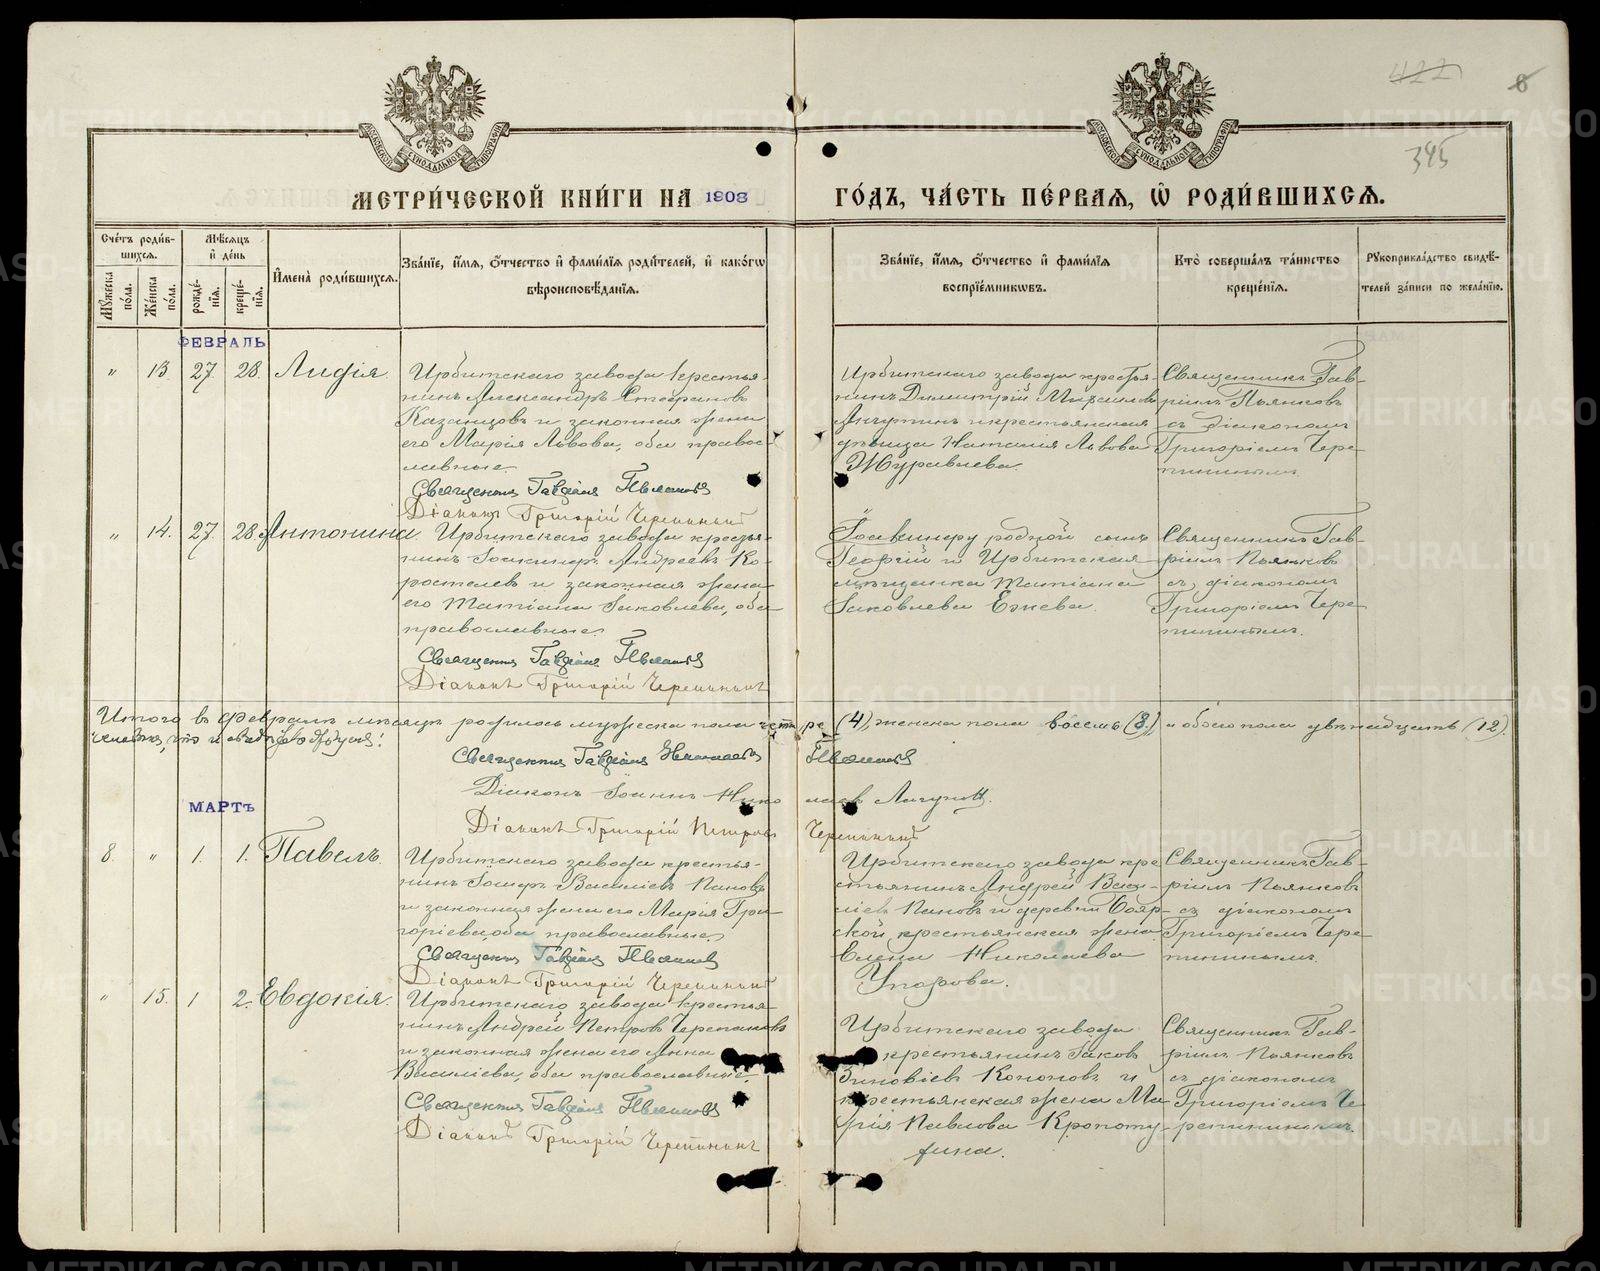 МОСКОВСКОЙ СѴНОДАЛЬНОЙ ТИПОГРАФІИ
МОСКОВСКОЙ СѴНОДАЛЬНОЙ ТИПОГРАФІИ
422
8
345
МЕТРИ́ЧЕСКОЙ КНИ́ГИ НА 1903 ГО́ДЪ, ЧА́СТЬ ПЕ́РВАѦ, Ѡ҆ РОДИ́ВШИХСѦ.
Сче́тъ роди́в-
шихсѧ.
Мѣ́сѧцъ
и҆ де́нь
Мꙋ́жеска по́ла.
Же́нска по́ла.
рожде́-
нїѧ.
креще́-
нїѧ.
И҆мена̀ роди́вшихсѧ.
Зва́нїе, и҆́мѧ, ѻ҆́тчество и҆ фами́лїѧ роди́телей, и҆ како́гѡ
вѣроисповѣ́данїѧ.
Зва́нїе, и҆́мѧ, ѻ҆́тчество и҆ фами́лїѧ
воспрїе́мникѡвъ.
Кто̀ соверша́лъ та́инство
креще́нїѧ.
Рꙋкоприкла́дство свидѣ́-
телей за́писи по жела́нїю.
ФЕВРАЛЬ
" 13. 27. 28. Лидія.
Ирбитскаго завода крестья-
нинъ Александръ Стефановъ
Казанцовъ и законная жена
его Марія Львова, оба правос-
лавные.
Священникъ Гавріилъ Пьянковъ
Діаконъ Григорій Черепнинъ
Ирбитскаго завода крестья-
нинъ Димитрій Михаиловъ
и крестьянская
дѣвица Наталія Львова
Журавлева.
Священникъ Гав-
ріилъ Пьянковъ
съ діакономъ
Григоріемъ Чере-
пнинымъ.
" 14. 27. 28. Антонина
Ирбитскаго завода крестья-
нинъ Іоакимъ Андреевъ Ко-
ростелев и законная жена
его Татіана Іаковлева, оба
православные.
Священникъ Гавріилъ Пьянковъ
Діаконъ Григорій Черепнинъ
родной сынъ
Георгій и Ирбитская
мѣщанка Татіана
Іаковлева Ежева.
Священникъ Гав-
ріилъ Пьянковъ
съ діакономъ
Григоріемъ Чере-
пнинымъ.
Итого въ Февралѣ мѣсяцѣ родилось мужеска пола четыре (4) женска пола восемь (8) и обоего пола двѣнадцать (12).
Священникъ Гавріилъ Николаевъ Пьянковъ
Діаконъ Іоаннъ Николаевъ
Діаконъ Григорій Петровъ Черепнинъ
МАРТЪ
8. " 1. 1. Павелъ.
Ирбитскаго завода крестья-
нинъ Василіевъ Пановъ
и законная жена его Марія Гри-
горіева, оба православные.
Священникъ Гавріилъ Пьянковъ
Діаконъ Григорій Черепнинъ
Ирбитскаго завода кре-
стьянинъ Андрей Васи-
ліевъ Пановъ и деревни Бояр-
ской крестьянская жена
Елена Николаева
Упорова.
Священникъ Гав-
ріилъ Пьянковъ
съ діакономъ
Григоріемъ Чере-
пнинымъ.
" 15. 1 2. Евдокія.
Ирбитскаго завода крестья-
нинъ Андрей Петровъ Черепановъ
и законная жена его Анна
Василіева, оба православные.
Священникъ Гавріилъ Пьянковъ
Діаконъ Григорій Черепнинъ
Ирбитскаго завода
крестьянинъ Іаковъ
Зиновіевъ Кононовъ и
крестьянская жена Ма-
рія Павлова Кропоту-
хина.
Священникъ Гав-
ріилъ Пьянковъ
съ діакономъ
Григоріемъ Че-
репнинымъ.
METRIKI.GASO-URAL.RU